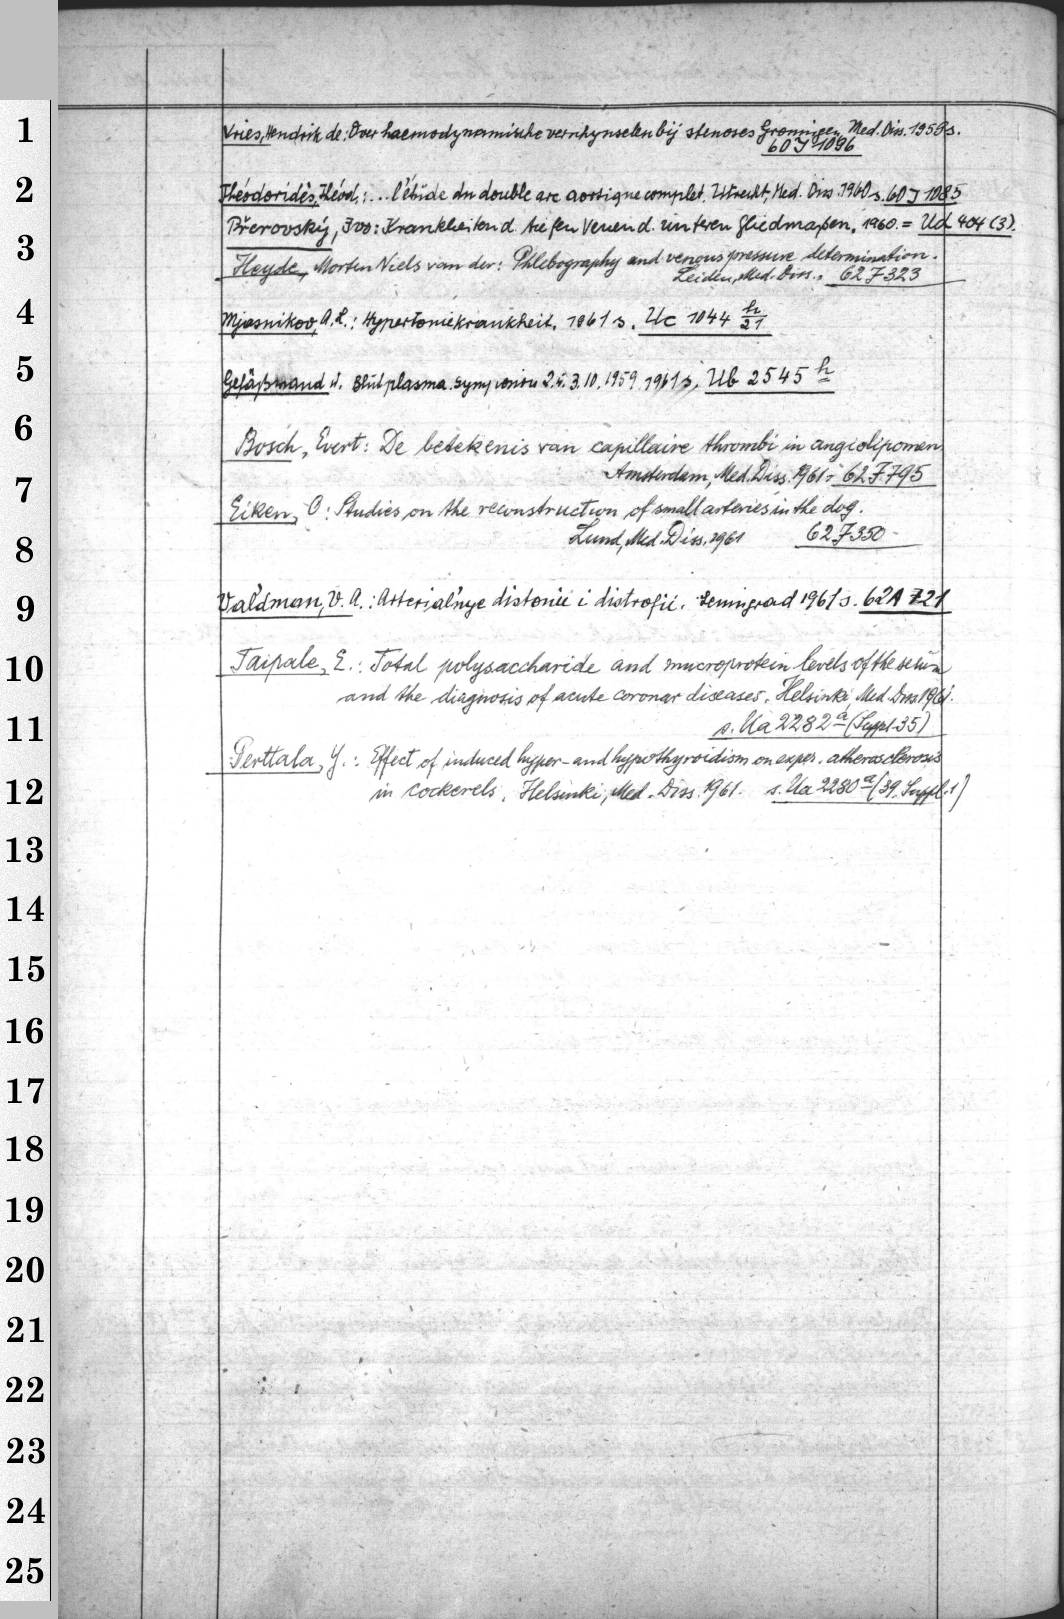 1
Vries, Hendrik de: Over haemodynamische verschijnselen bij stenoses Groningen, Med. Diss. 1958 s.
60 J 1096
2
Théodoridès, Théod.: ... l'étude du double arc aortique complet. Utrecht, Med. Diss. 1960 s. 60 J 1085
Přerovský, Ivo: Krankheiten d. tiefen Venen d. unteren Gliedmaßen, 1960. = Ud 404 (3).
3
Heyde, Morten Niels van der: Phlebography and venous pressure determination.
Leiden, Med. Diss., 62 J 323
4
Mjasnikov, A. L.: Hypertoniekrankheit, 1961 s. Uc 1044 h/21
5
Gefäßwand u. Blutplasma. Symposion 2.u.3.10.1959 1961 s. Ub 2545 h
6
Bosch, Evert: De betekenis van capillaire thrombi in angiolipomen
Amsterdam, Med. Diss. 1961 - 62 J 795
7
Eiken, O: Studies on the reconstruction of small arteries in the dog.
8
Lund, Med. Diss. 1961 62 J 350 -
9
Val'dman, V. A.: Arterial'nye distonii i distrofii. Leningrad 1961 s. 62 A 721
10
Taipale, E.: Total polysaccharide and mucroprotein levels of the serum
and the diagnosis of acute coronar diseases. Helsinki, Med. Diss 1961.
11
s. Ua 2282 a (Suppl. 35)
Perttala, Y.: Effect of induced hyper- and hypothyroidism on exper. atherosclerosis
12
in cockerels, Helsinki, Med. Diss. 1961. s. Ua 2280 a (39. Suppl. 1)
13
14
15
16
17
18
19
20
21
22
23
24
25